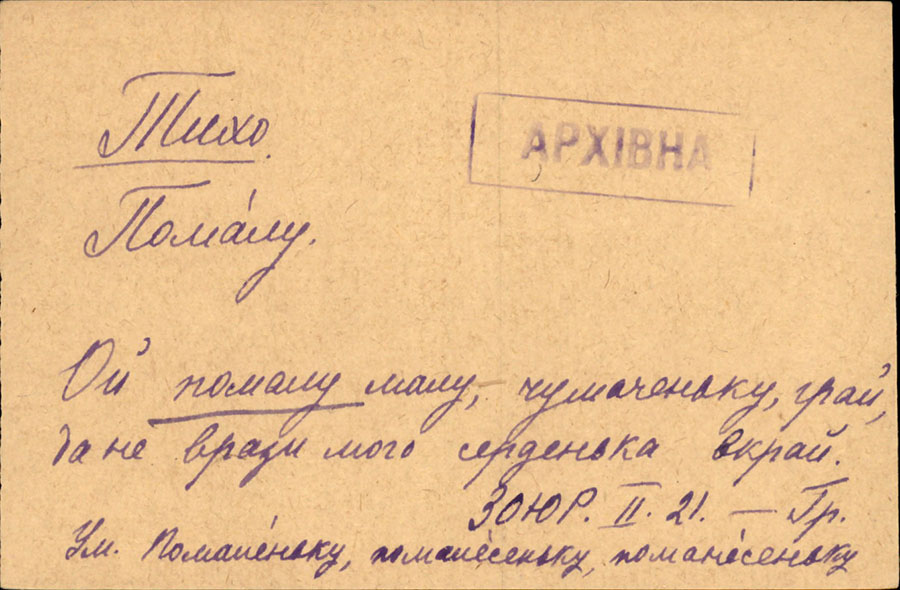 Тихо.
АРХІВНА
Пома́лу.
Ой помалу малу, чумаченьку, грай,
да не врази мого серденька вкрай.
ЗОЮР. II. 21. — Гр.
Ум. Помале́ньку, помале́сеньку, помане́сеньку